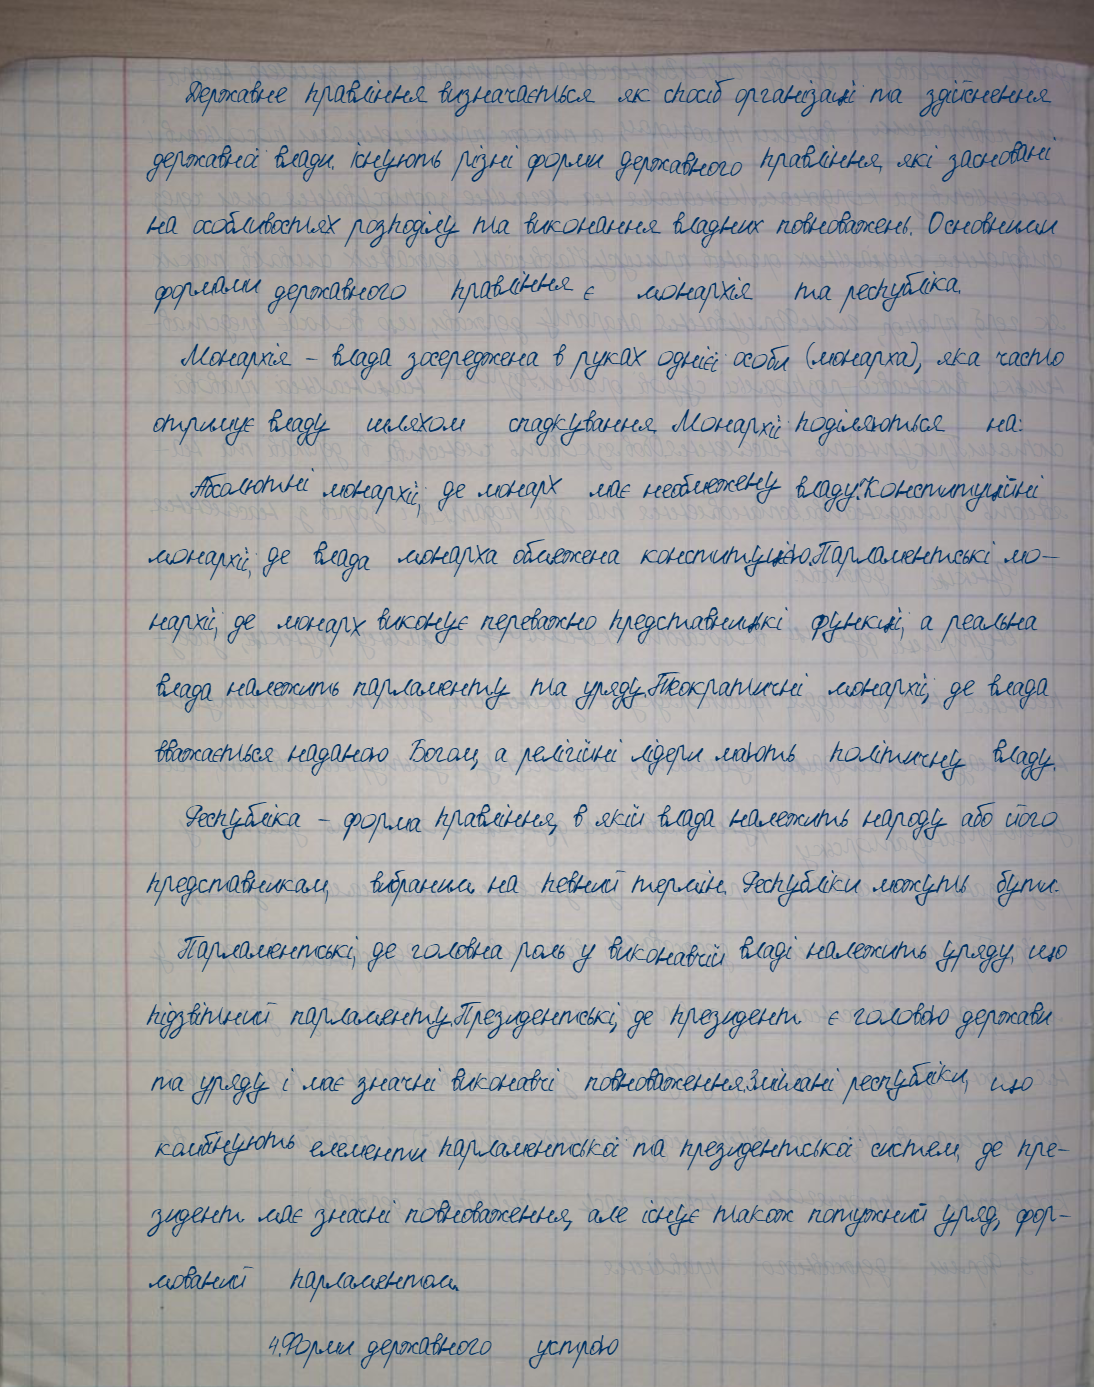 Державне правління визначається як спосіб організації та здійснення
державної влади. Існують різні форми державного правління, які засновані
на особливостях розподілу та виконання владних повноважень. Основними
формами державного правління є монархія та республіка.
Монархія – влада зосереджена в руках однієї особи (монарха), яка часто
отримує владу шляхом спадкування. Монархії поділяються на:
Абсолютні монархії, де монарх має необмежену владу. Конституційні
монархії, де влада монарха обмежена конституцією. Парламентські мо-
нархії, де монарх виконує переважно представницькі функції, а реальна
влада належить парламенту та уряду. Теократичні монархії, де влада
вважається наданою Богом, а релігійні лідери мають політичну владу.
Республіка – форма правління, в якій влада належить народу або його
представникам, вибраним на певний термін. Республіки можуть бути:
Парламентські, де головна роль у виконавчій владі належить уряду, що
підзвітний парламенту. Президентські, де президент є головою держави
та уряду і має значні виконавчі повноваження. Змішані республіки, що
комбінують елементи парламентської та президентської систем, де пре-
зидент має значні повноваження, але існує також потужний уряд, фор-
мований парламентом.
4. Форми державного устрою